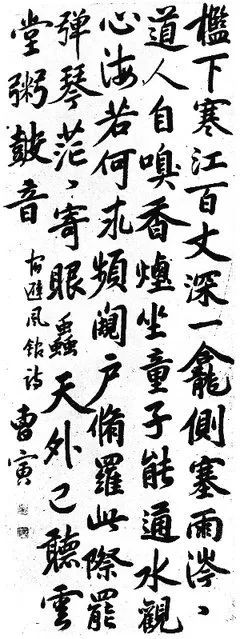 檻下寒江百丈深一龕側塞雨涔、
道人自嗅香煙坐童子能通水觀
心海若何求頻闔戶脩羅此際罷
彈琴茫、寄眼蟲天外已聽雲
堂粥鼓音
宿避風館詩 曹寅